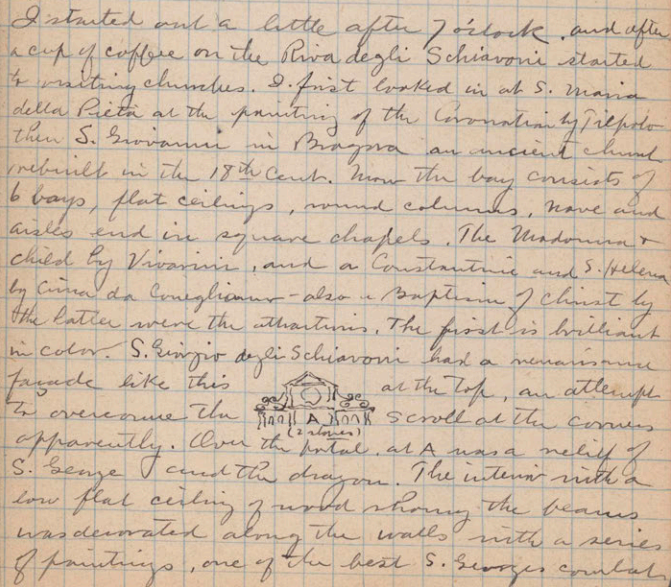 I started out a little after 7 o'clock, and after
a cup of coffee on the Riva degli Schiavoni started
to visiting churches. I first looked in at S. Maria
della Pietà at the painting of the Coronation by Tiepolo
then S. Giovanni in Bragora an ancient church
rebuilt in the 18th Cent. Now the bay consists of
6 bays, flat ceilings, round columns, nave and
aisles end in square chapels. The Madonna +
child by Vivarini, and a Constantine and S. Helena
by Cima da Conegliano - also a Baptism of Christ by
the latter were the attractions. The first is brilliant
in color. S. Giorgio degli Schiavoni had a renaissance
façade like this at the top, an attempt
to overcome the A scroll at the corners
(2 stories)
apparently. Over the portal at A was a relief of
S. George and the dragon. The interior with a
low flat ceiling of wood showing the beams
was decorated along the walls with a series
of paintings, one of the best S. Georges combat